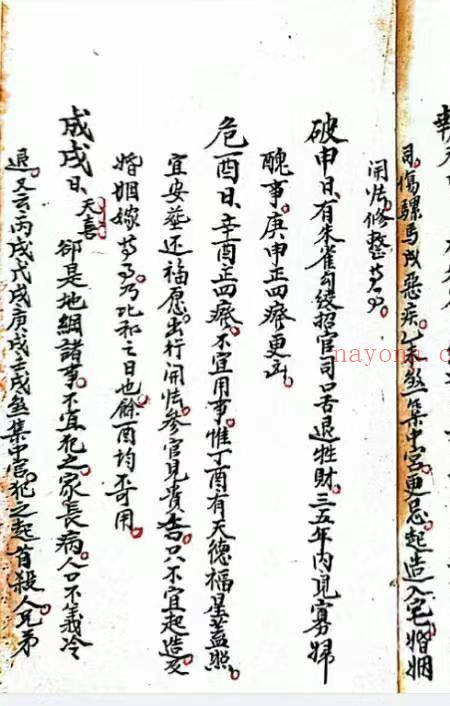 司傷騾馬成惡疾乙未煞集中宮更忌起造入宅婚姻
開店修整等
破申日有朱雀勾絞招官司口舌退牲財三五年内見寡婦
醜事庚申正四癈更凶
危酉日辛酉正四癈不宜用事惟丁酉有天德福星蓋照
宜安葬还福愿出行開店參官見貴吉只不宜起造及
婚姻嫁等事乃比和之日也餘酉均不可用
成戌日天喜卻是地網諸事不宜犯之家長病人口不義冷
退又云丙戌戊戌庚戌壬戌煞集中宮犯之起首殺人兄弟
nayona.c